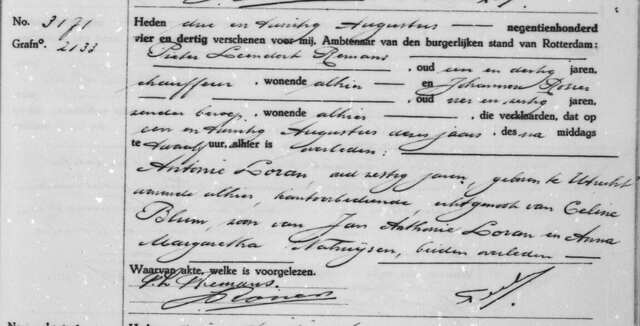 No. 3171
Grafno. 2133
Heden drie en twintig Augustus negentienhonderd
vier en dertig verschenen voor mij, Ambtenaar van den burgerlijken stand van Rotterdam:
Pieter Leendert Remans
, oud een en dertig jaren,
chauffeur, wonende alhier en Johannes
, oud en zestig jaren,
zonder beroep, wonende alhier die verklaarden, dat op
een en twintig Augustus dezes jaars des na middags
te twaalf uur, alhier is overleden:
Antonie Loran, oud zestig jaren, geboren te Utrecht
wonende alhier, kantoorbediende, echtgenoot van Celine
Blum, zoon van Jan Anthonie Loran en Anna
Margaretha Nathuijsen, beiden overleden
Waarvan akte, welke is voorgelezen.
P.L. Remans